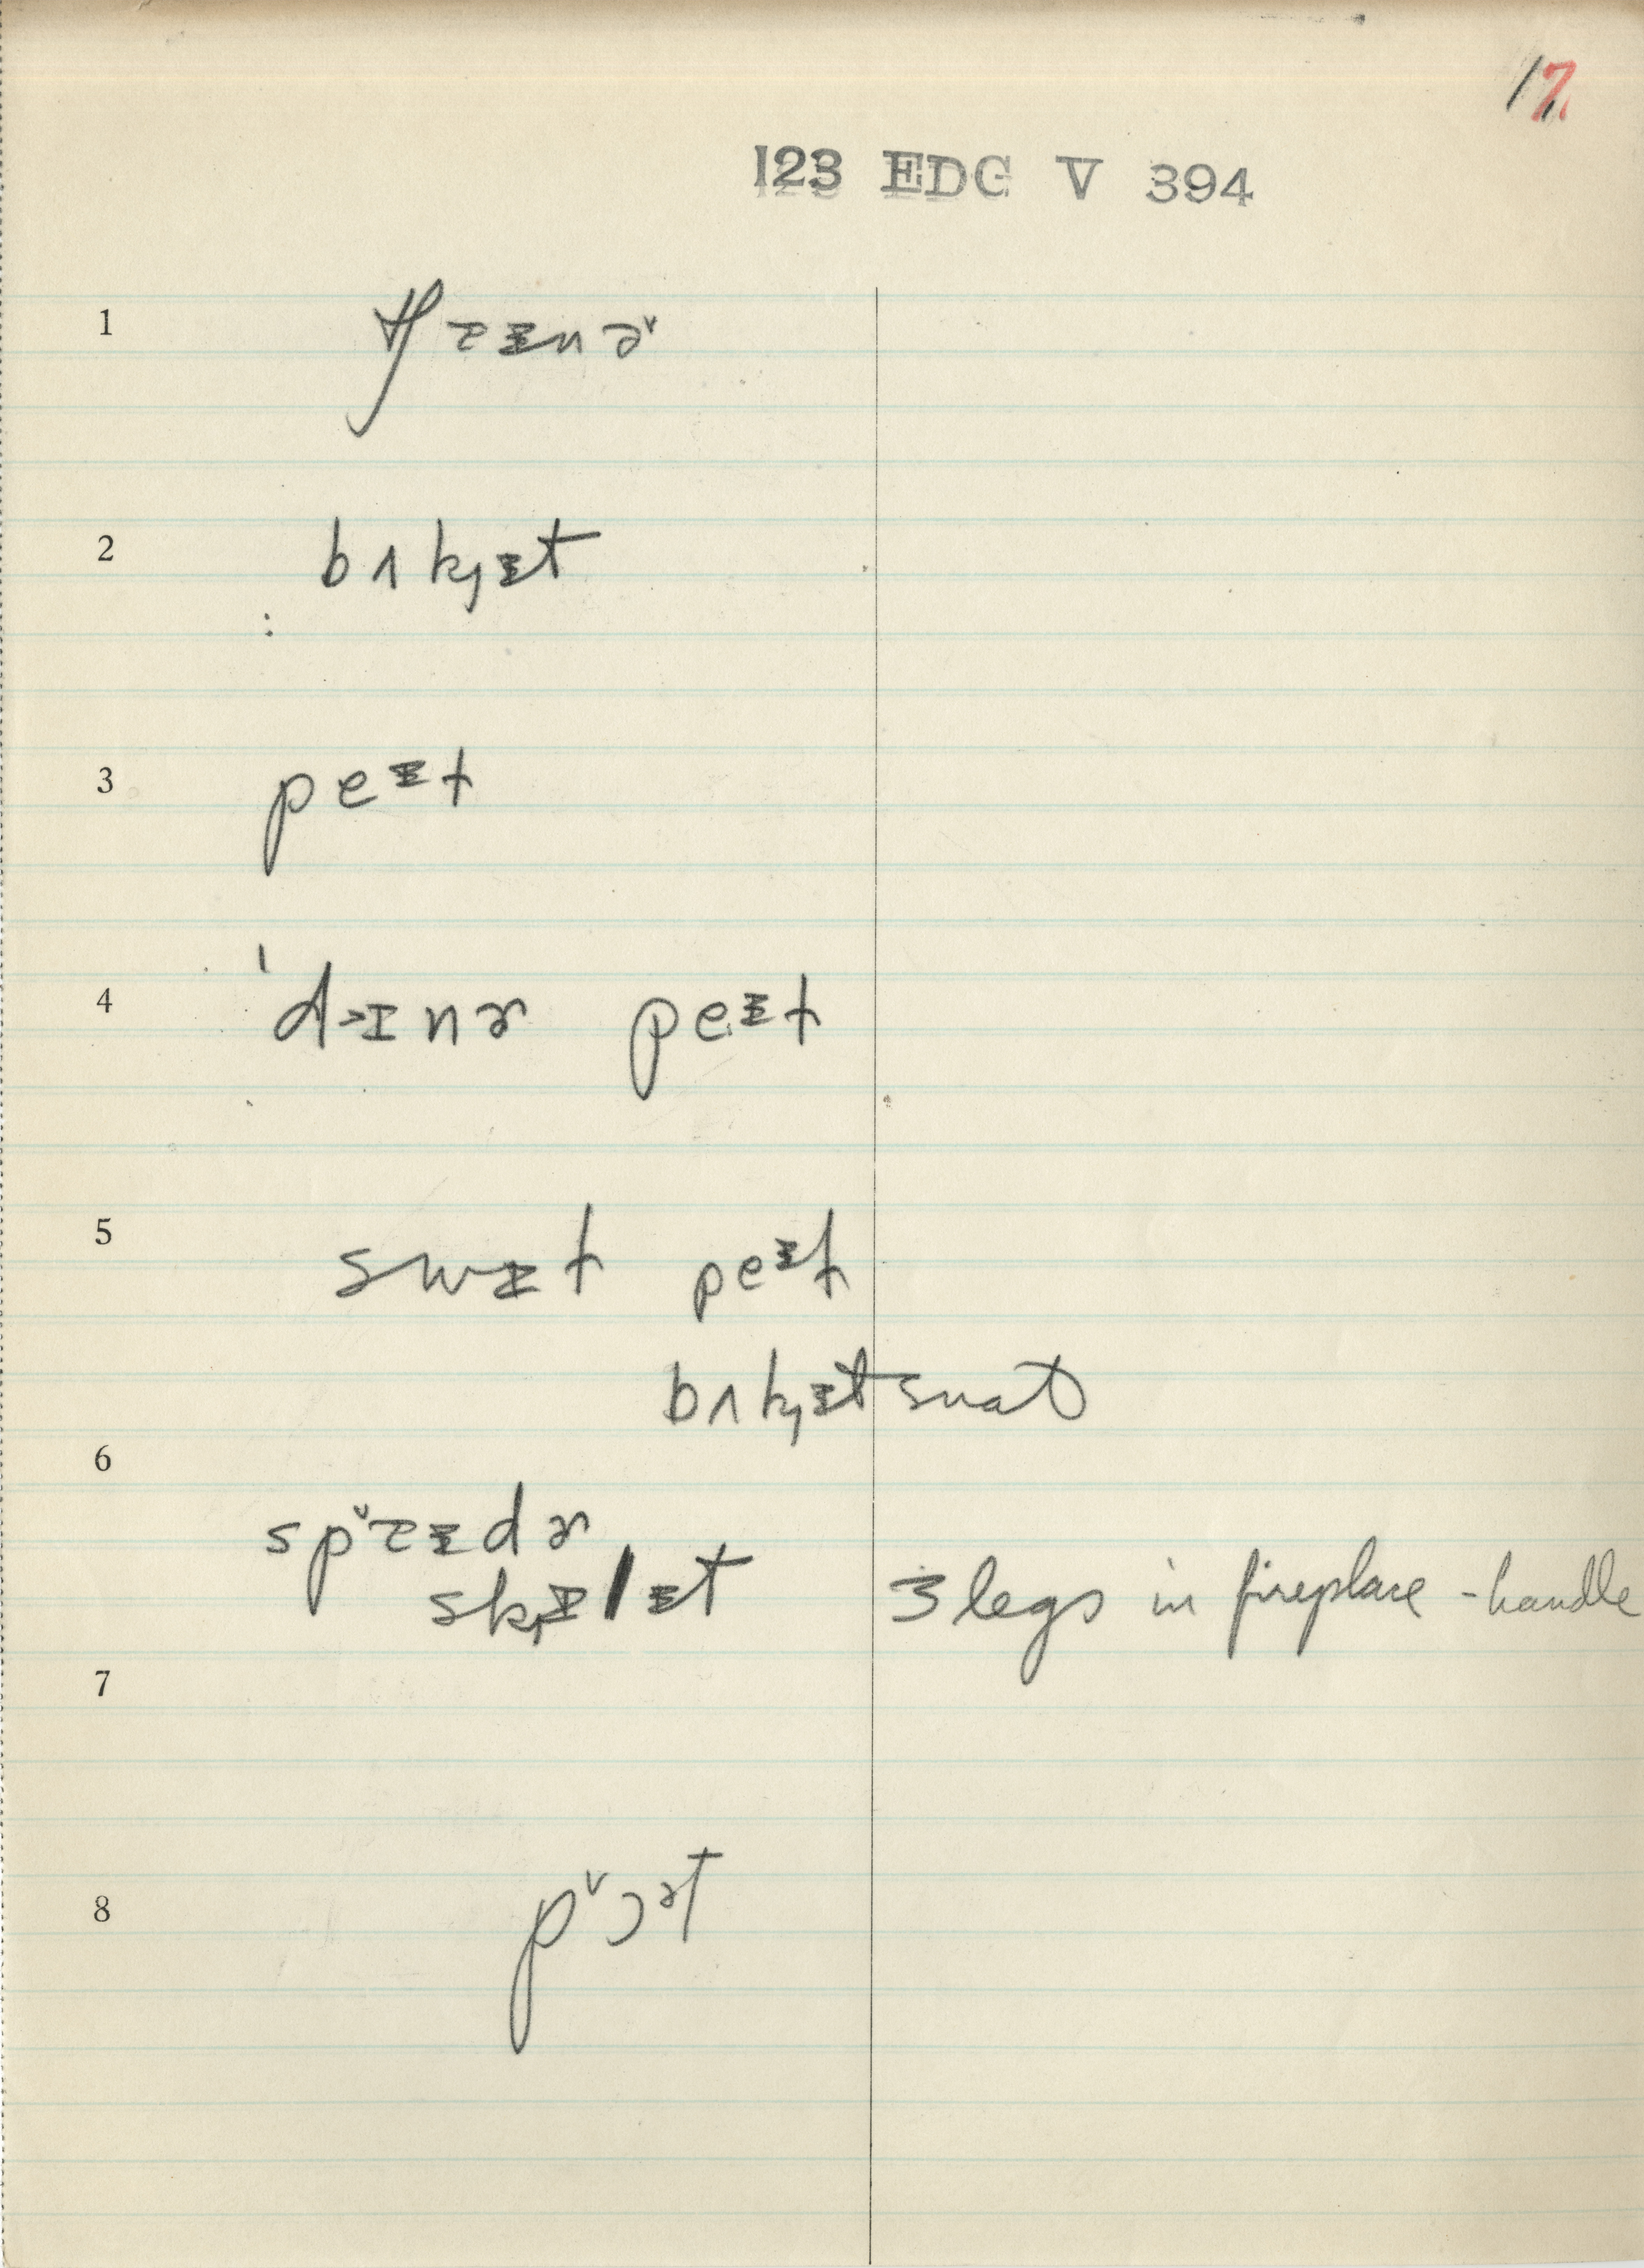 17
123 EDG V 394
1 tʃɐɪnə˅
2 bʌkɟɪt
3 peɪt
4 ˈdɪnɚ peɪt
5 swɪt peɪt
bʌkɟɪt
6
spɐɪdɚ
skɪlɪt 3 legs in fireplace - handle
7
8 p˅ɔət